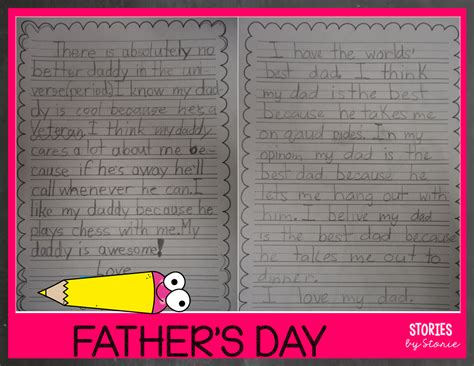 There is absolutely no
better daddy in the uni-
verse(period).I know my dad-
dy is cool because he's a
veteran.I think my daddy
cares a lot about me be-
cause if he's away he'll
call whenever he can.I
like my daddy because he
plays chess with me.My
daddy is awesome!
Love
I have the worlds'
best dad. I think
my dad is the best
because he takes me
on quad rides. In my
opinion my dad is the
best dad because he
lets me hang out with
him. I belive my dad
is the best dad because
he takes me out to
dinner.
I love my dad.
FATHER'S DAY
STORIES
by Storie